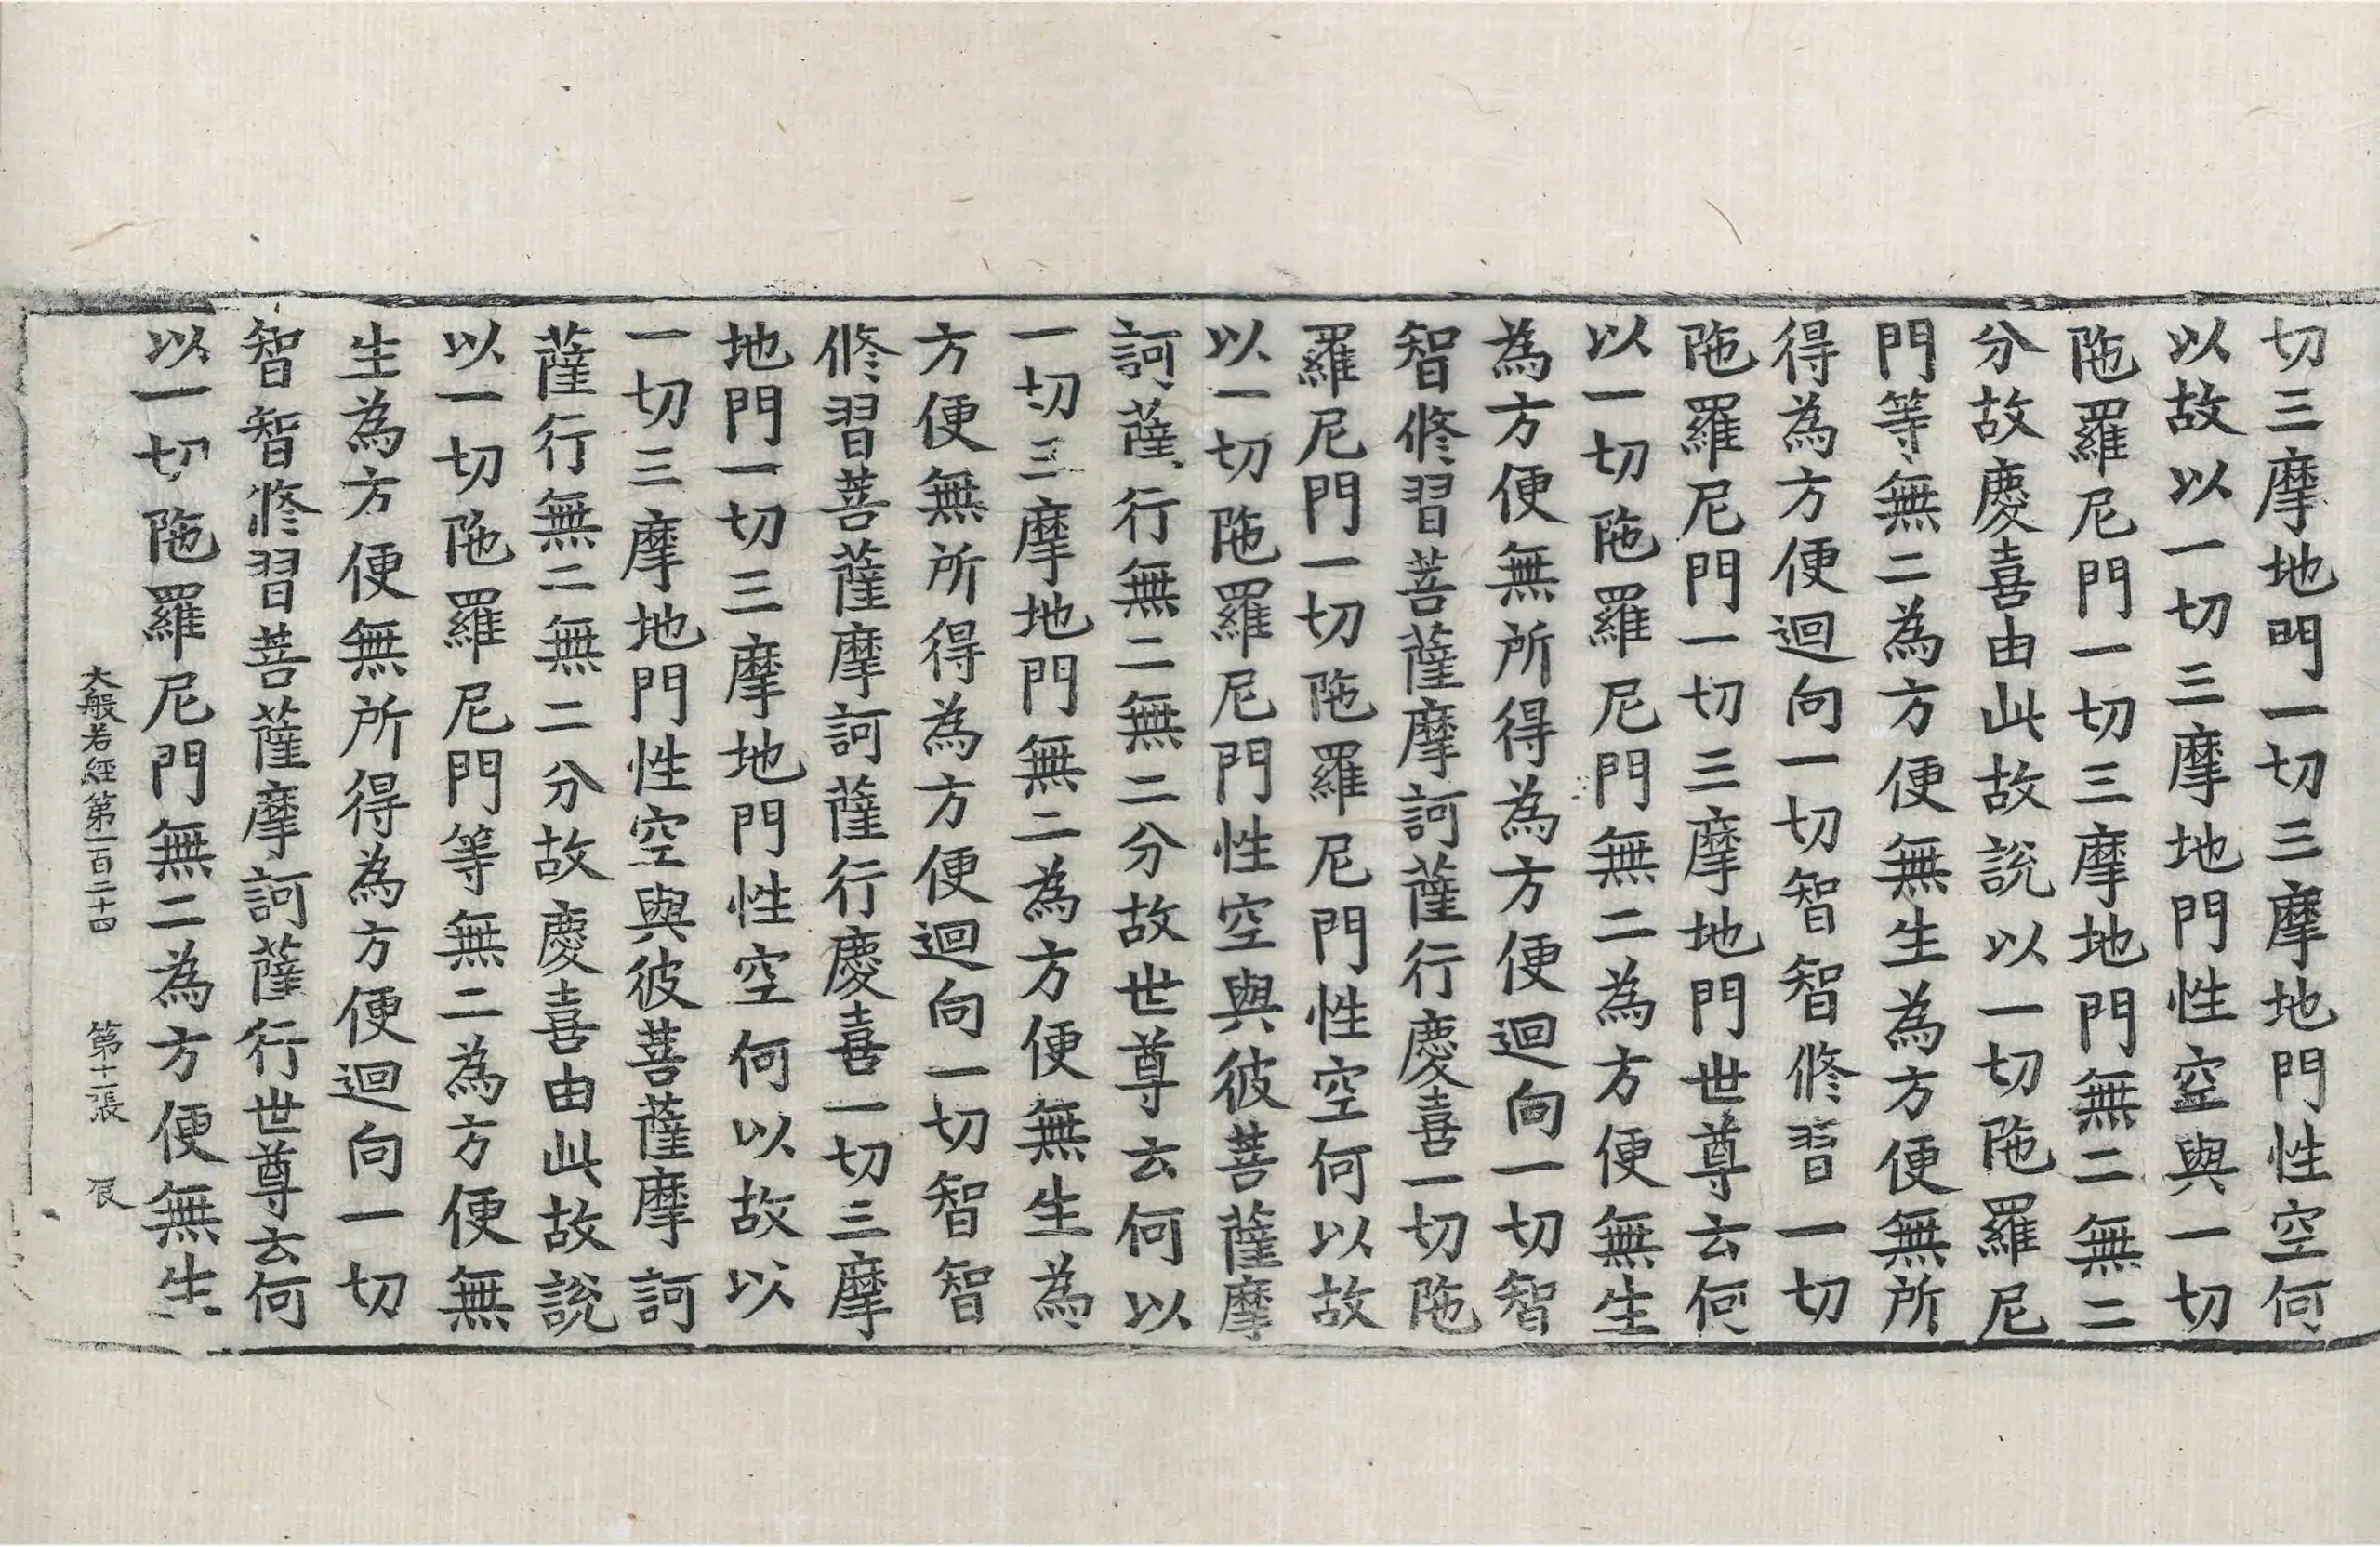 切三摩地門一切三摩地門性空何
以故以一切三摩地門性空與一切
陁羅尼門一切三摩地門無二無二
分故慶喜由此故說以一切陁羅尼
門等無二為方便無生為方便無所
得為方便迴向一切智智修習一切
陁羅尼門一切三摩地門世尊云何
以一切陁羅尼門無二為方便無生
為方便無所得為方便迴向一切智
智修習菩薩摩訶薩行慶喜一切陁
羅尼門一切陁羅尼門性空何以故
以一切陁羅尼門性空與彼菩薩摩
訶薩行無二無二分故世尊云何以
一切三摩地門無二為方便無生為
方便無所得為方便迴向一切智智
修習菩薩摩訶薩行慶喜一切三摩
地門一切三摩地門性空何以故以
一切三摩地門性空與彼菩薩摩訶
薩行無二無二分故慶喜由此故說
以一切陁羅尼門等無二為方便無
生為方便無所得為方便迴向一切
智智修習菩薩摩訶薩行世尊云何
以一切陁羅尼門無二為方便無生
大般若經第一百二十四 第十二張 辰